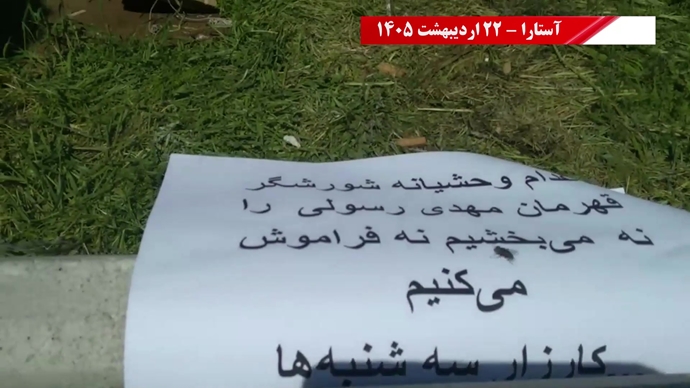 آستارا - ۲۲ اردیبهشت ۱۴۰۵
وحشیانه شورشگر
قهرمان مهدی رسولی را
نه می‌بخشیم نه فراموش
می‌کنیم
کارزار سه شنبه‌ها